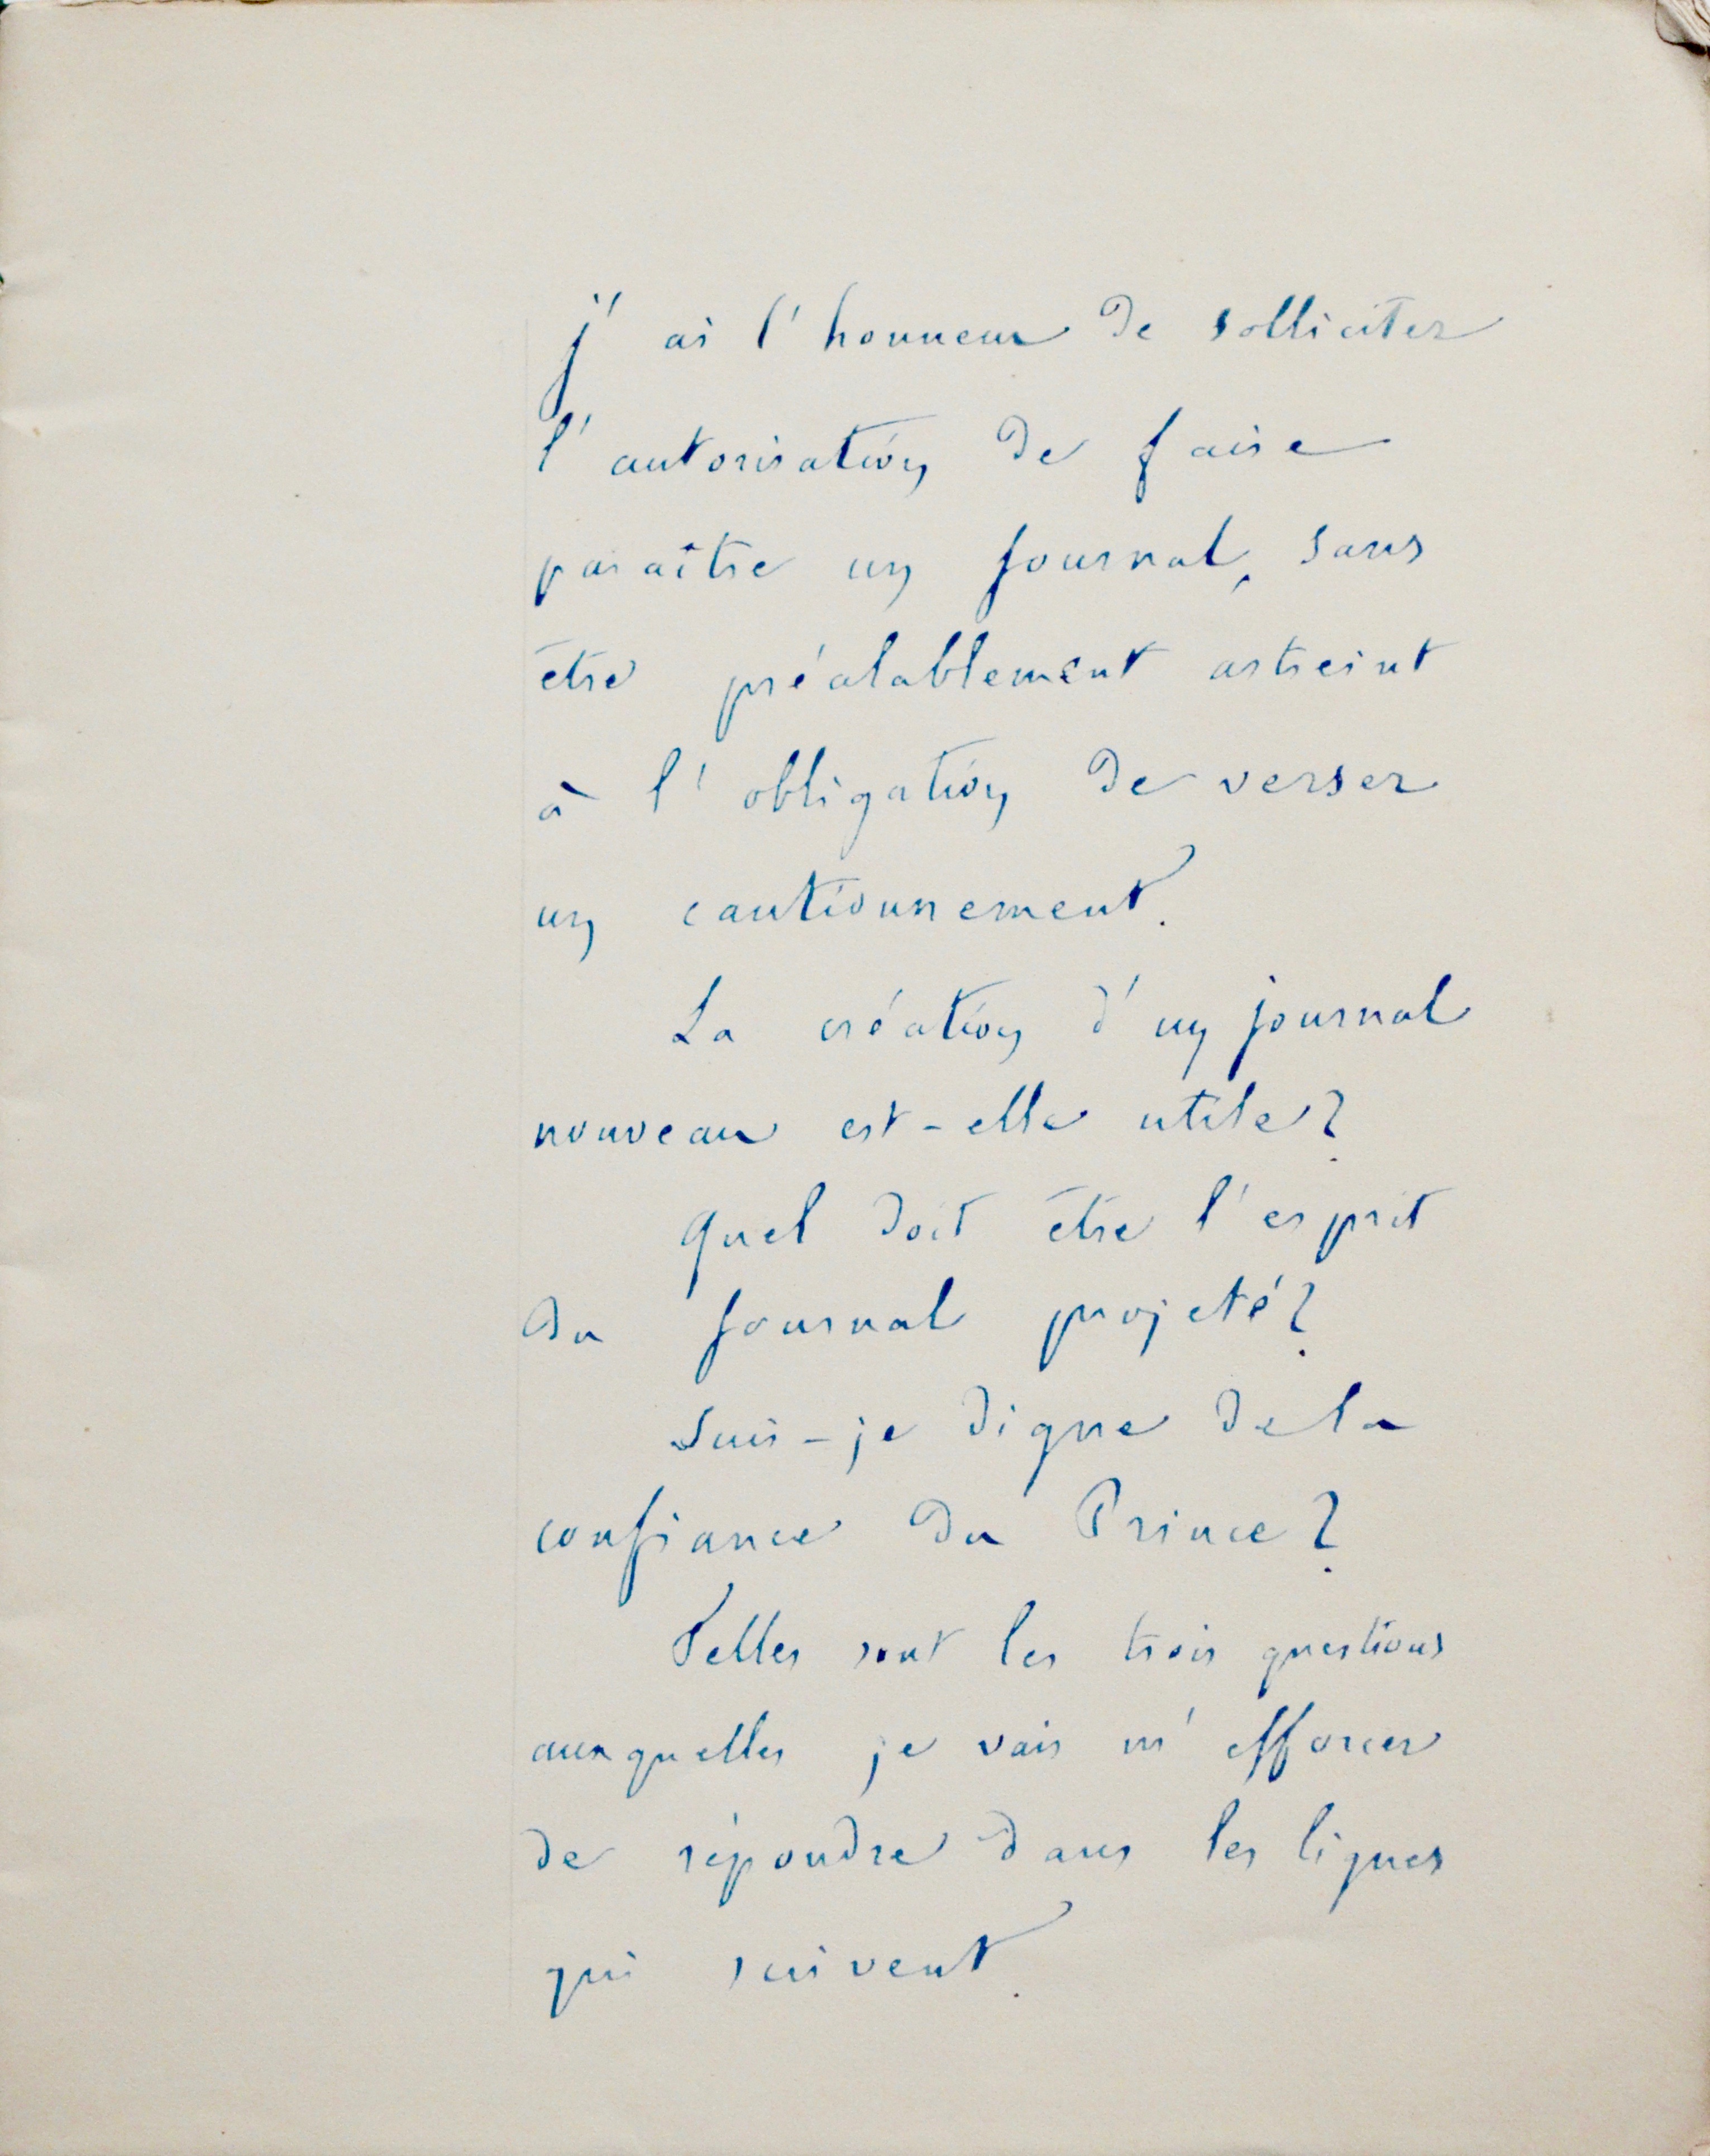 j'ai l'honneur de solliciter
l'autorisation de faire
paraître un journal, sans
être préalablement astreint
à l'obligation de verser
un cautionnement.
La création d'un journal
nouveau est-elle utile?
Quel doit être l'esprit
du journal projeté?
Suis-je digne de la
confiance du Prince?
Telles sont les trois questions
auxquelles je vais m'efforcer
de répondre dans les lignes
qui suivent.